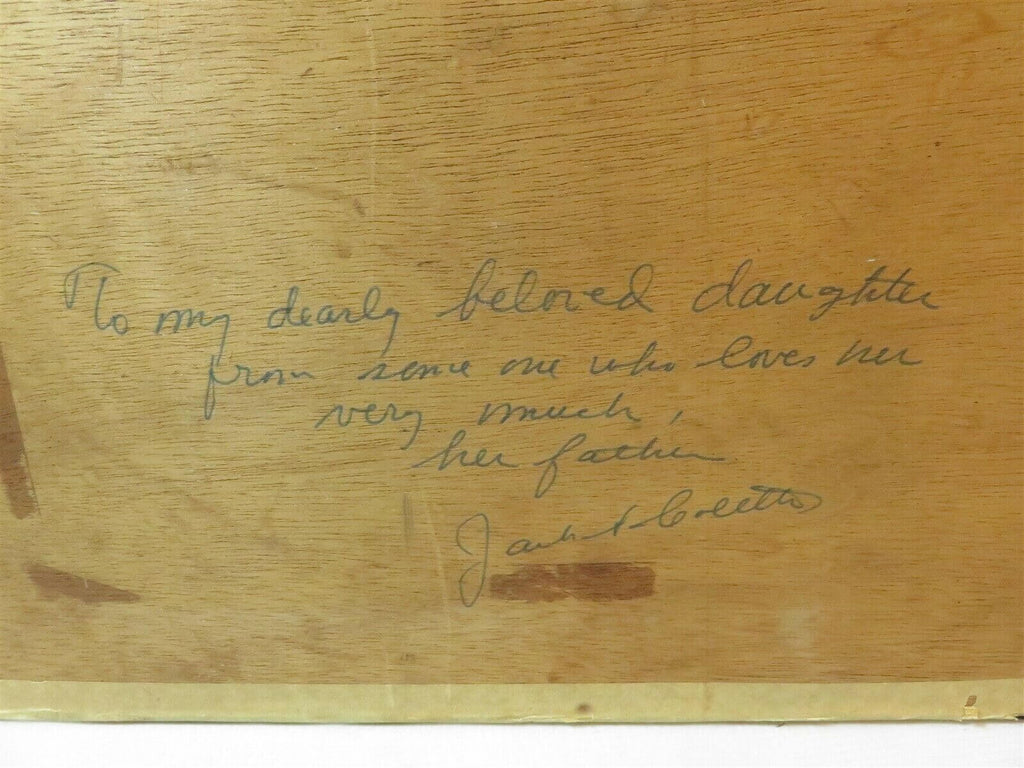 To my dearly beloved daughter
from some one who loves her
very much,
her father
Jack